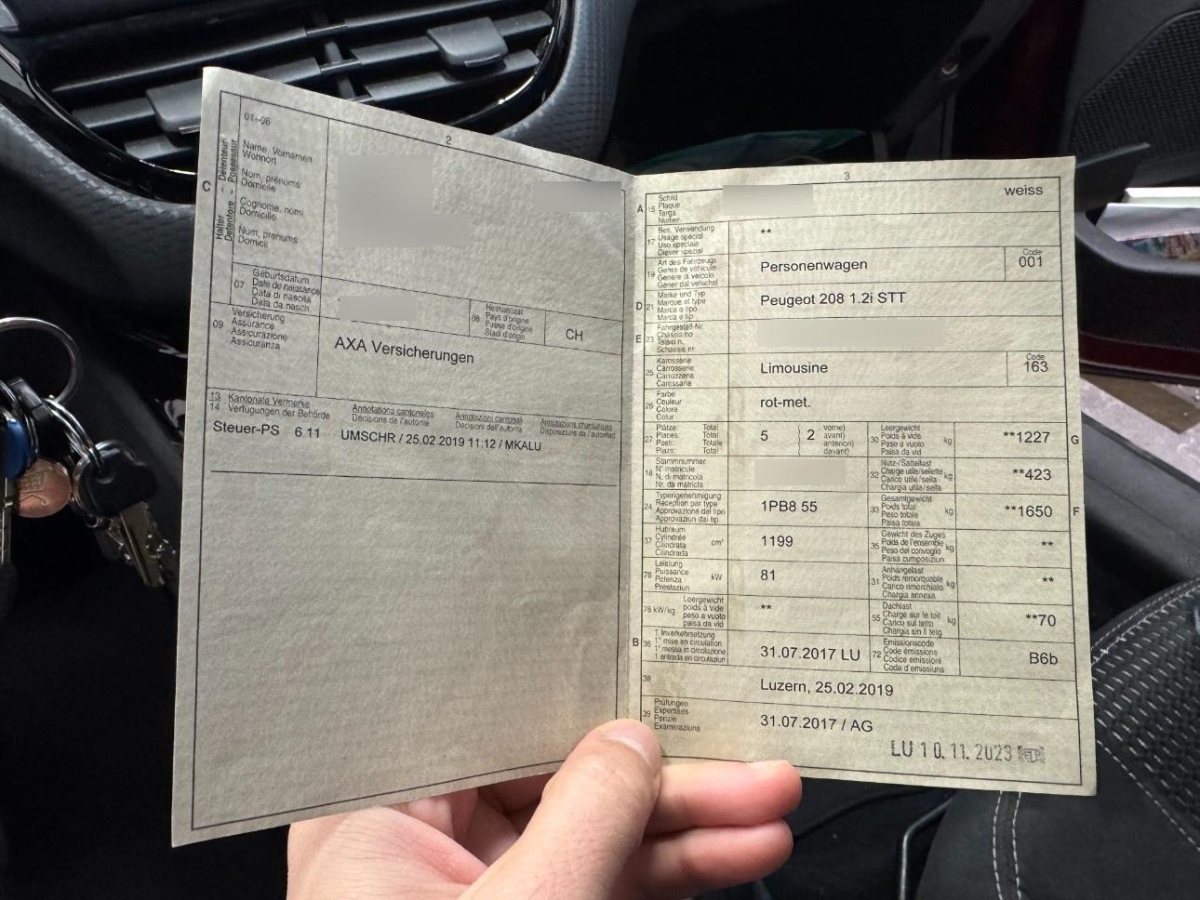 2
01-06
C
Halter Détenteur
Detentore Possessur
Name, Vornamen
Wohnort
Nom, prénoms
Domicile
Cognome, nomi
Domicilio
Num, prenums
Domicil
07
Geburtsdatum
Date de naissance
Data di nascita
Data da nasch.
08
Heimatstaat
Pays d'origine
Paese d'origine
Stadi d'origin
CH
09
Versicherung
Assurance
Assicurazione
Assicuranza
AXA Versicherungen
13 Kantonale Vermerke Annotations cantonales Annotazioni cantonali Annotaziuns chantunalas
14 Verfügungen der Behörde Décisions de l'autorité Decisioni dell'autorità Disposiziuns da l'autoritad
Steuer-PS 6.11 UMSCHR / 25.02.2019 11.12 / MKALU
3
A 15
Schild
Plaque
Targa
Numer
weiss
17
Bes. Verwendung
Usage spécial
Uso speciale
Diever spezial
**
19
Art des Fahrzeugs
Genre de véhicule
Genere di veicolo
Gener dal vehichel
Personenwagen
Code
001
D 21
Marke und Typ
Marque et type
Marca e tipo
Marca e tip
Peugeot 208 1.2i STT
E 23
Fahrgestell-Nr.
Châssis no
Telaio n.
Schassis nr.
25
Karosserie
Carrosserie
Carrozzeria
Carossaria
Limousine
Code
163
26
Farbe
Couleur
Colore
Colur
rot-met.
27
Plätze: Total
Places: Total
Posti: Totale
Plazs: Total
5 2
vorne)
avant)
anteriori)
davant)
30
Leergewicht
Poids à vide
Peso a vuoto
Paisa da vid
kg
**1227
G
18
Stammnummer
N° matricule
N. di matricola
Nr. da matricla
32
Nutz-/Sattellast
Charge utile/sellette
Carico utile/sella
Chargia utila/sella
kg
**423
24
Typengenehmigung
Réception par type
Approvazione del tipo
Approvaziun dal tip
1PB8 55
33
Gesamtgewicht
Poids total
Peso totale
Paisa totala
kg
**1650
F
37
Hubraum
Cylindrée
Cilindrata
Cilindrada
cm³
1199
35
Gewicht des Zuges
Poids de l'ensemble
Peso del convoglio
Paisa cumposiziun
kg
**
76
Leistung
Puissance
Potenza
Prestaziun
kW
81
31
Anhängelast
Poids remorquable
Carico rimorchiato
Chargia annexa
kg
**
78 kW/kg
Leergewicht
poids à vide
peso a vuoto
paisa da vid
**
55
Dachlast
Charge sur le toit
Carico sul tetto
Chargia sin il tetg
kg
**70
B 36
1. Inverkehrsetzung
1re mise en circulation
1a messa in circolazione
1. entrada en circulaziun
31.07.2017 LU
72
Emissionscode
Code émissions
Codice emissioni
Code d'emissiuns
B6b
38
Luzern, 25.02.2019
39
Prüfungen
Expertises
Perizie
Examinaziuns
31.07.2017 / AG
LU 10.11.2023